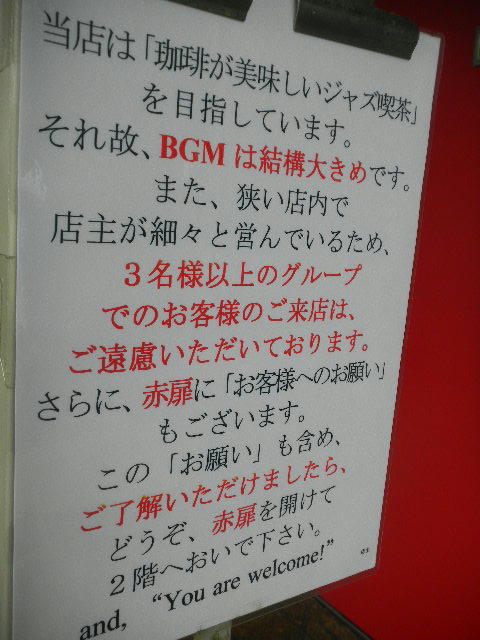 当店は「珈琲が美味しいジャズ喫茶」
を目指しています。
それ故、BGMは結構大きめです。
また、狭い店内で
店主が細々と営んでいるため、
３名様以上のグループ
でのお客様のご来店は、
ご遠慮いただいております。
さらに、赤扉に「お客様へのお願い」
もございます。
この「お願い」も含め、
ご了解いただけましたら、
どうぞ、赤扉を開けて
２階へおいで下さい。
and, “You are welcome!”